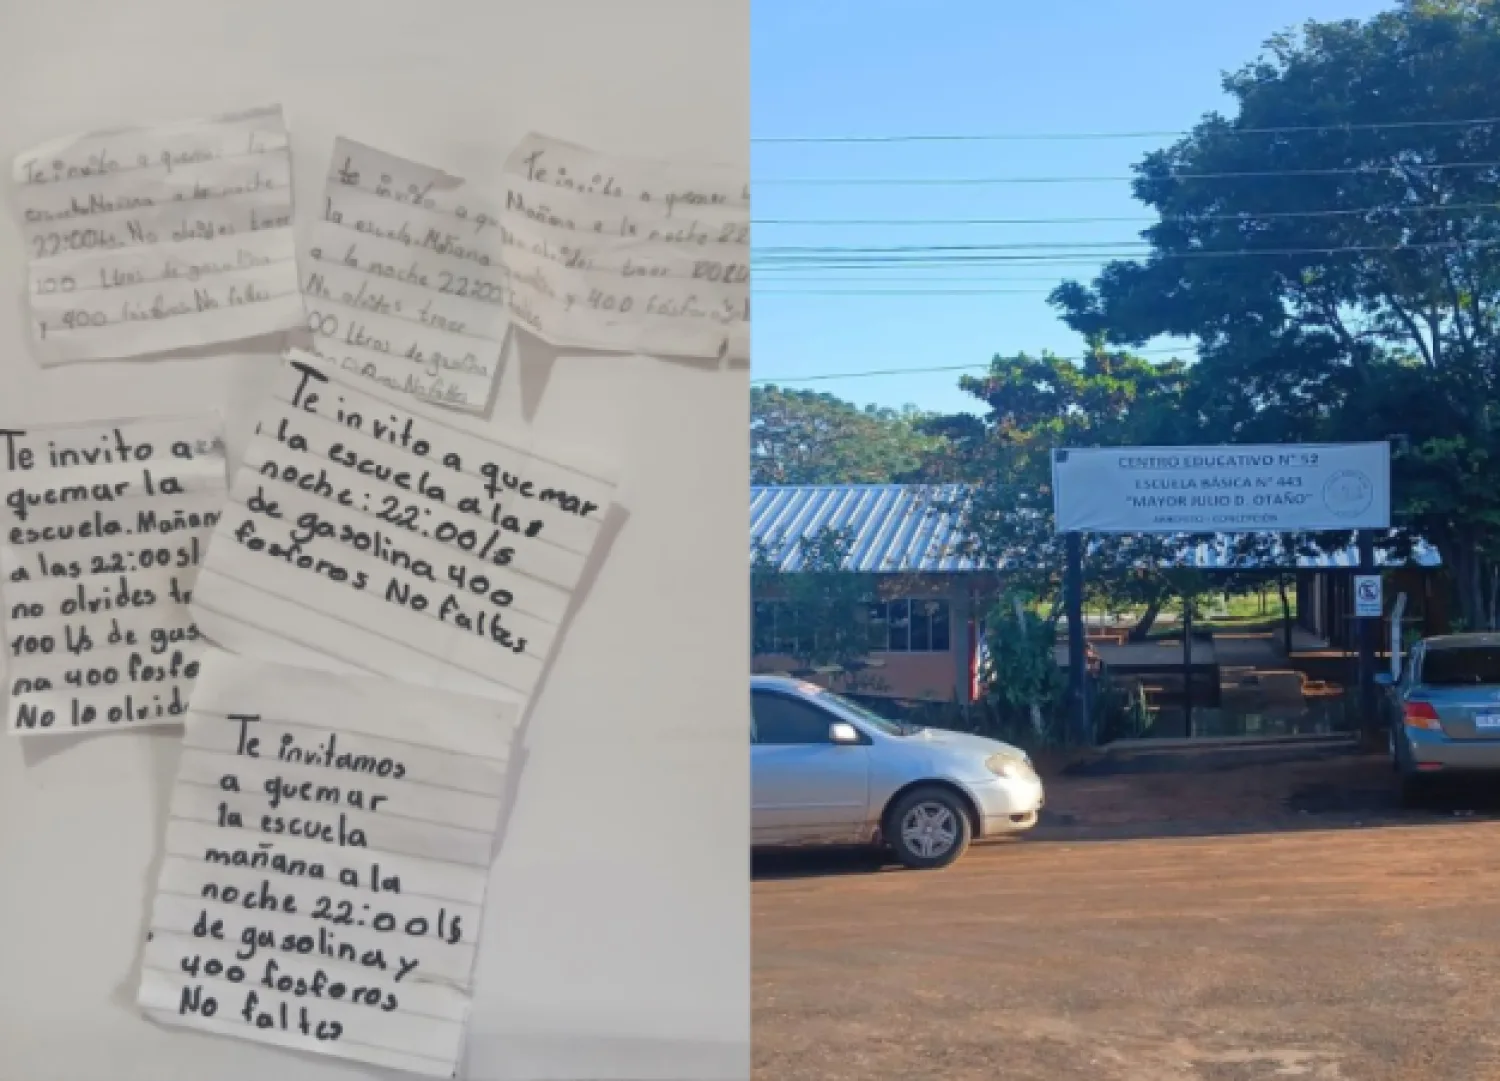 Te invito a quemar la
escuela Mañana a la noche
22:00hs. No olvides traer
100 Ltros de gasolina
y 400 fosforos No faltes
te invito a qu
la escuela. Mañana
a la noche 22:00
No olvides traer
00 ltros de gasolina
No faltes
Te invito a quemar
Mañana a la noche 22
No olvides traer
y 400 fósforos
Te invito a
quemar la
escuela. Mañan
a las 22:00
no olvides tr
100 ls de gas
na 400 fosfo
No lo olvid
Te invito a quemar
la escuela a las
noche: 22:00ls
de gasolina 400
fosforos No faltes
Te invitamos
a quemar
la escuela
mañana a la
noche 22:00ls
de gasolina y
400 fosforos
No faltes
CENTRO EDUCATIVO N° 52
ESCUELA BÁSICA N° 443
"MAYOR JULIO D. OTAÑO"
ARROYITO - CONCEPCIÓN